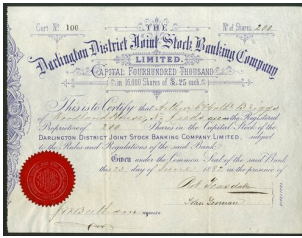 Cert. No. 100
No. of Shares 200
THE
Darlington District Joint Stock Banking Company
LIMITED.
CAPITAL FOURHUNDRED THOUSAND
in 16,000 Shares of £25 each
This is to Certify that Arthur Briggs
of Leeds is the Registered
Proprietor of 200 Shares in the Capital Stock of the
DARLINGTON DISTRICT JOINT STOCK BANKING COMPANY LIMITED, subject
to the Rules and Regulations of the said Bank.
Given under the Common Seal of the said Bank
this 23 day of June 1882 in the presence of